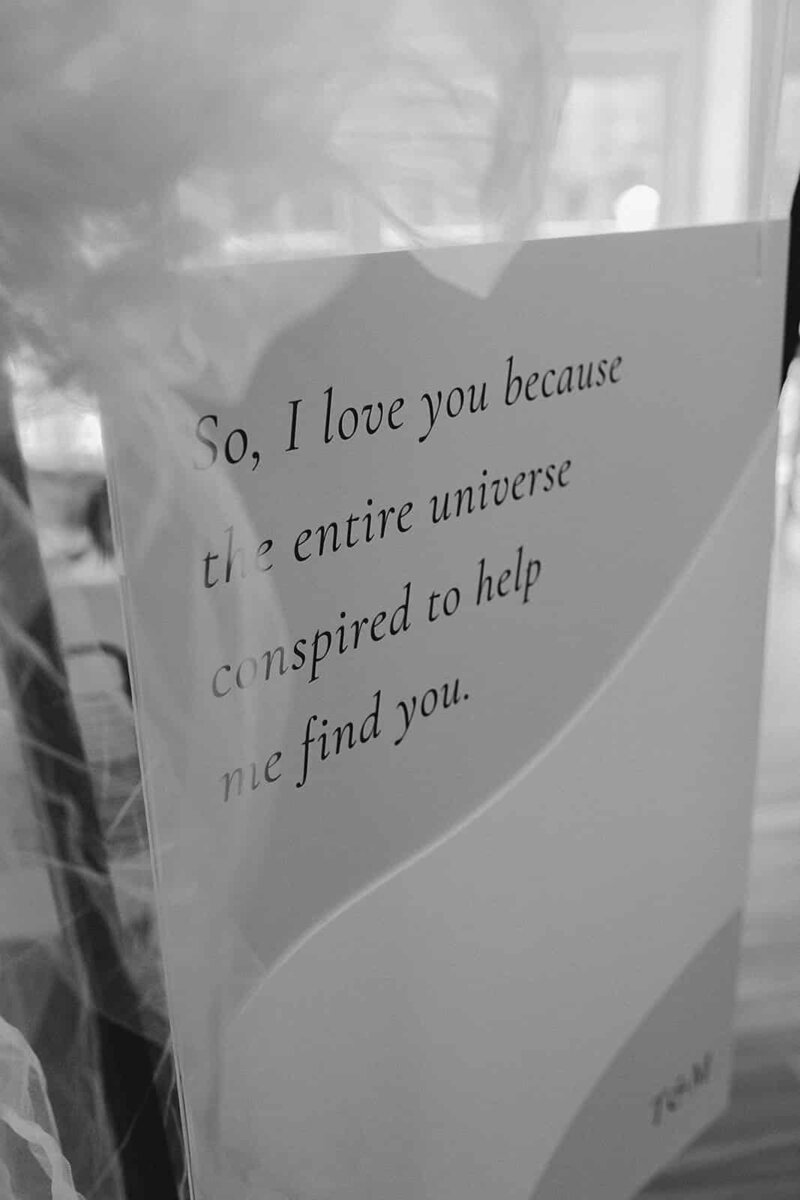 So, I love you because
the entire universe
conspired to help
me find you.
T&M